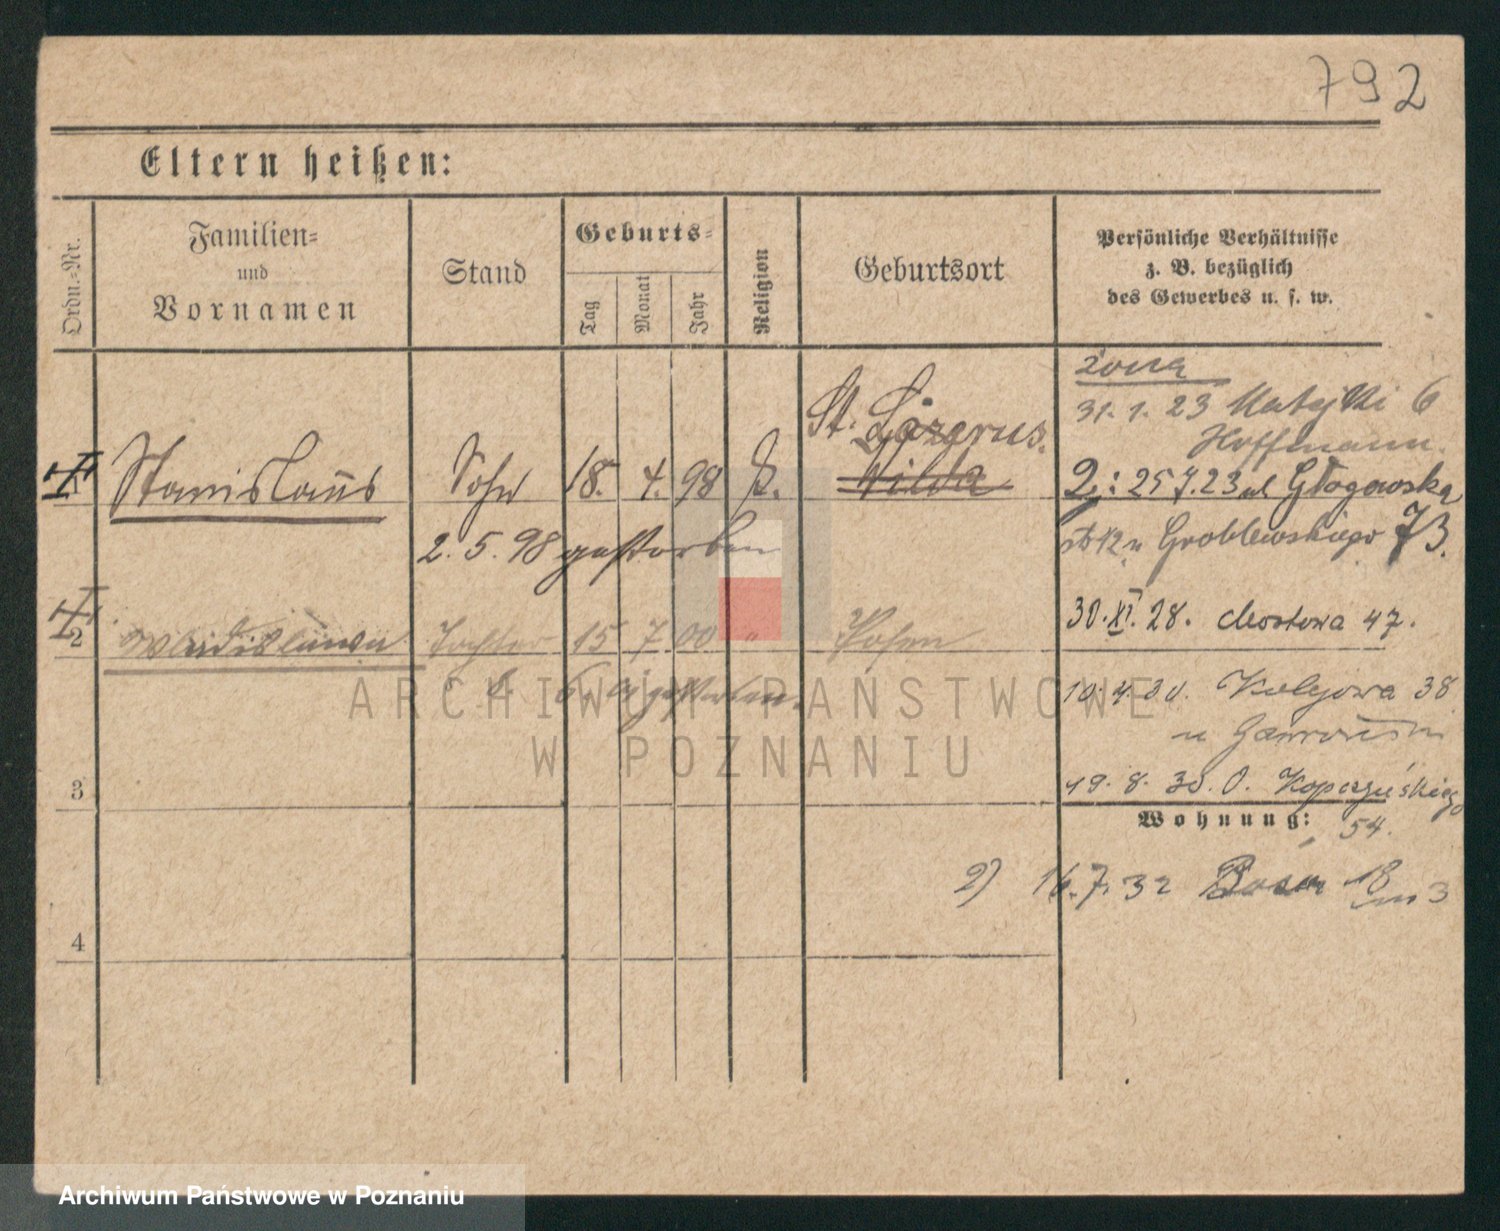 792
Eltern heißen:
Ordn.-Nr.
Familien-
und
Vornamen
Stand
Geburts-
Tag
Monat
Jahr
Religion
Geburtsort
Persönliche Verhältnisse
z. B. bezüglich
des Gewerbes u. s. w.
żona
31.1.23 Matejki 6
Hoffmann.
St. Lazarus.
1 Stanislaus Sohn 18. 4. 98 k. Wilda
2j: 25 7.23 ul Głogowska
2. 5. 98 gestorben
u Groblewskiego 73.
30.XI.28. Mostowa 47.
2 Wladislawa Tochter 15 7 00 " Posen
gestorben.
10.4.30. Kolejowa 38
u
19.8.30. O. Kopczyńskiego
3
Wohnung: 54.
2) 16.7.32 18 m 3
4
ARCHIWUM PAŃSTWOWE
W POZNANIU
Archiwum Państwowe w Poznaniu